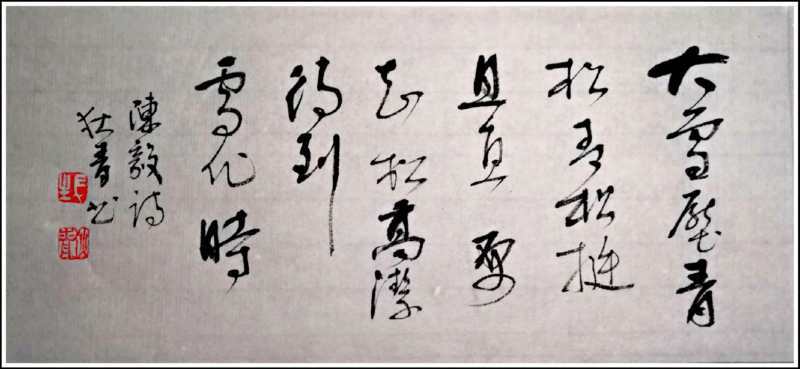 大雪壓青
松青松挺
且直要
知松高潔
待到
雪化時
陳毅詩
狄青书